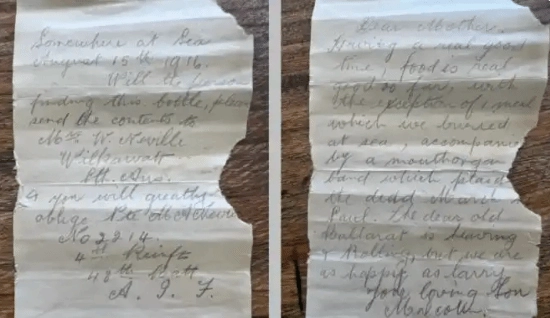 Somewhere at Sea
August 15th 1916.
Will the person
finding this bottle, please
send the contents to
Mrs W. Neville
Wilkawatt
Sth. Aus.
& you will greatly
oblige Pte M A Neville
No 3214.
4th Reinfts
48th Batt
A. I. F.
Dear Mother,
Having a real good
time, food is real
good so far, with
the exception of 1 meal
which we buried
at sea, accompanied
by a mouthorgan
band which played
the dead March in
Saul. The dear old
Ballarat is heaving
& Rolling, but we are
as happy as larry
Your loving Son
Malcolm.